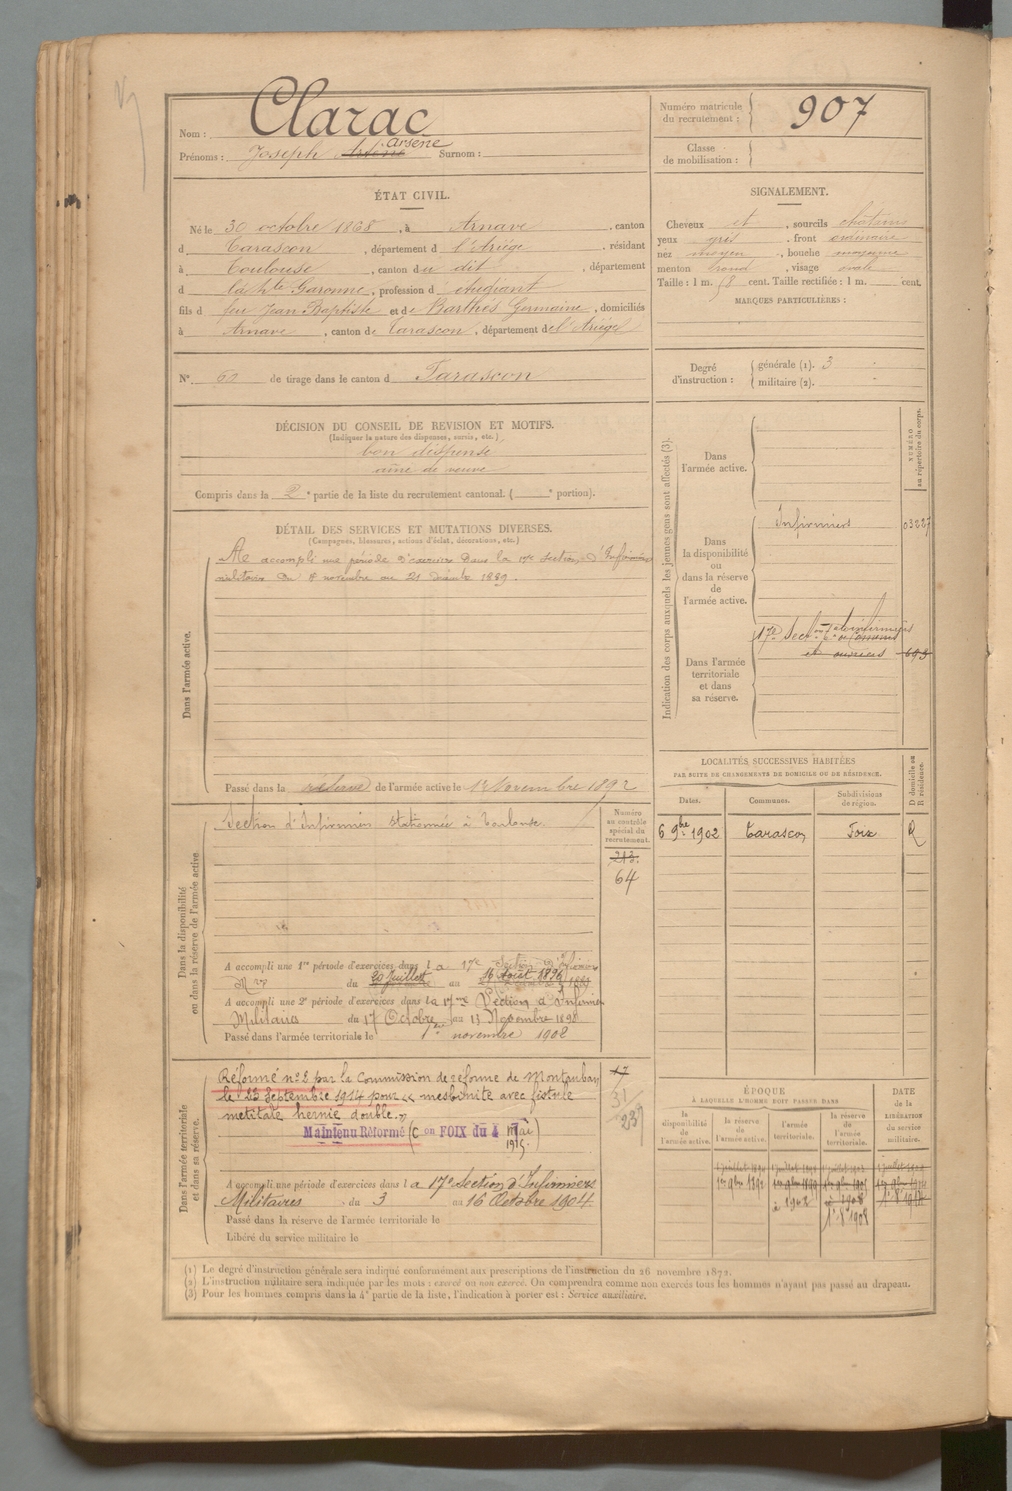 Nom : Clarac
Prénoms : Joseph Arsène Arsene Surnom :
Numéro matricule du recrutement : 907
Classe de mobilisation :
ÉTAT CIVIL.
Né le 30 octobre 1868, à Arnave, canton
d Tarascon, département d l'Ariège, résidant
à Toulouse, canton du dit, département
d la Hte Garonne, profession d étudiant
fils d feu Jean Baptiste et de Barthès Germaine, domiciliés
à Arnave, canton de Tarascon, département de l'Ariège
N° 60 de tirage dans le canton d Tarascon
SIGNALEMENT.
Cheveux et, sourcils chatain
yeux gris, front ordinaire
nez moyen, bouche moyenne
menton rond, visage ovale
Taille : 1 m. 58 cent. Taille rectifiée : 1 m. cent.
MARQUES PARTICULIÈRES :
Degré d'instruction : générale (1). 3
militaire (2).
DÉCISION DU CONSEIL DE REVISION ET MOTIFS.
(Indiquer la nature des dispenses, sursis, etc.)
bon dispense
aîné de veuve
Compris dans la 2e partie de la liste du recrutement cantonal. ( e portion).
DÉTAIL DES SERVICES ET MUTATIONS DIVERSES.
(Campagnes, blessures, actions d'éclat, décorations, etc.)
Dans l'armée active.
A accompli une période d'exercices dans la 17e section d'Infirmiers
militaires du 8 novembre au 21 décembre 1889.
Passé dans la réserve de l'armée active le 1 Novembre 1892
Indication des corps auxquels les jeunes gens sont affectés (3).
NUMÉRO au répertoire du corps.
Dans l'armée active.
Dans la disponibilité ou dans la réserve de l'armée active.
Infirmiers 03227
Dans l'armée territoriale et dans sa réserve.
17e Secton d'infirmiers
et ouvriers 693
Dans la disponibilité ou dans la réserve de l'armée active.
Section d'Infirmiers stationnée à Toulouse.
Numéro au contrôle spécial du recrutement.
213.
64
A accompli une 1re période d'exercices dans la 17e Section d'Infirmiers
Mres du 20 Juillet au 16 Août 1896
A accompli une 2e période d'exercices dans la 17me Section d'Infirmiers
Militaires du 17 Octobre au 13 Novembre 1898
Passé dans l'armée territoriale le 1er novembre 1902
LOCALITÉS SUCCESSIVES HABITÉES
PAR SUITE DE CHANGEMENTS DE DOMICILE OU DE RÉSIDENCE.
D domicile ou R résidence.
Dates. Communes. Subdivisions de région.
6 9bre 1902 Tarascon Foix R
Dans l'armée territoriale et dans sa réserve.
Réformé n° 2 par la Commission de réforme de Montauban
le 23 Septembre 1914 pour avec fistule
hernie double.
Maintenu Réformé (Con FOIX du 4 Mai
1915.)
17
31
239
A accompli une période d'exercices dans la 17e Section d'Infirmiers
Militaires du 3 au 16 Octobre 1904.
Passé dans la réserve de l'armée territoriale le
Libéré du service militaire le
ÉPOQUE
À LAQUELLE L'HOMME DOIT PASSER DANS
DATE de la LIBÉRATION du service militaire.
la disponibilité de l'armée active.
la réserve de l'armée active.
l'armée territoriale.
la réserve de l'armée territoriale.
1er 9bre 1892
à 1902
1908
(1) Le degré d'instruction générale sera indiqué conformément aux prescriptions de l'instruction du 26 novembre 1872.
(2) L'instruction militaire sera indiquée par les mots : exercé ou non exercé. On comprendra comme non exercés tous les hommes n'ayant pas passé au drapeau.
(3) Pour les hommes compris dans la 4e partie de la liste, l'indication à porter est : Service auxiliaire.